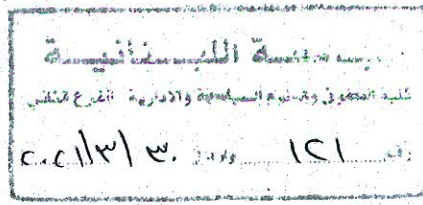 الجامعة اللبنانية
كلية الحقوق والعلوم السياسية والادارية الفرع
رقم ١٢١ وارد ٣٠/٣/٢٠٢١